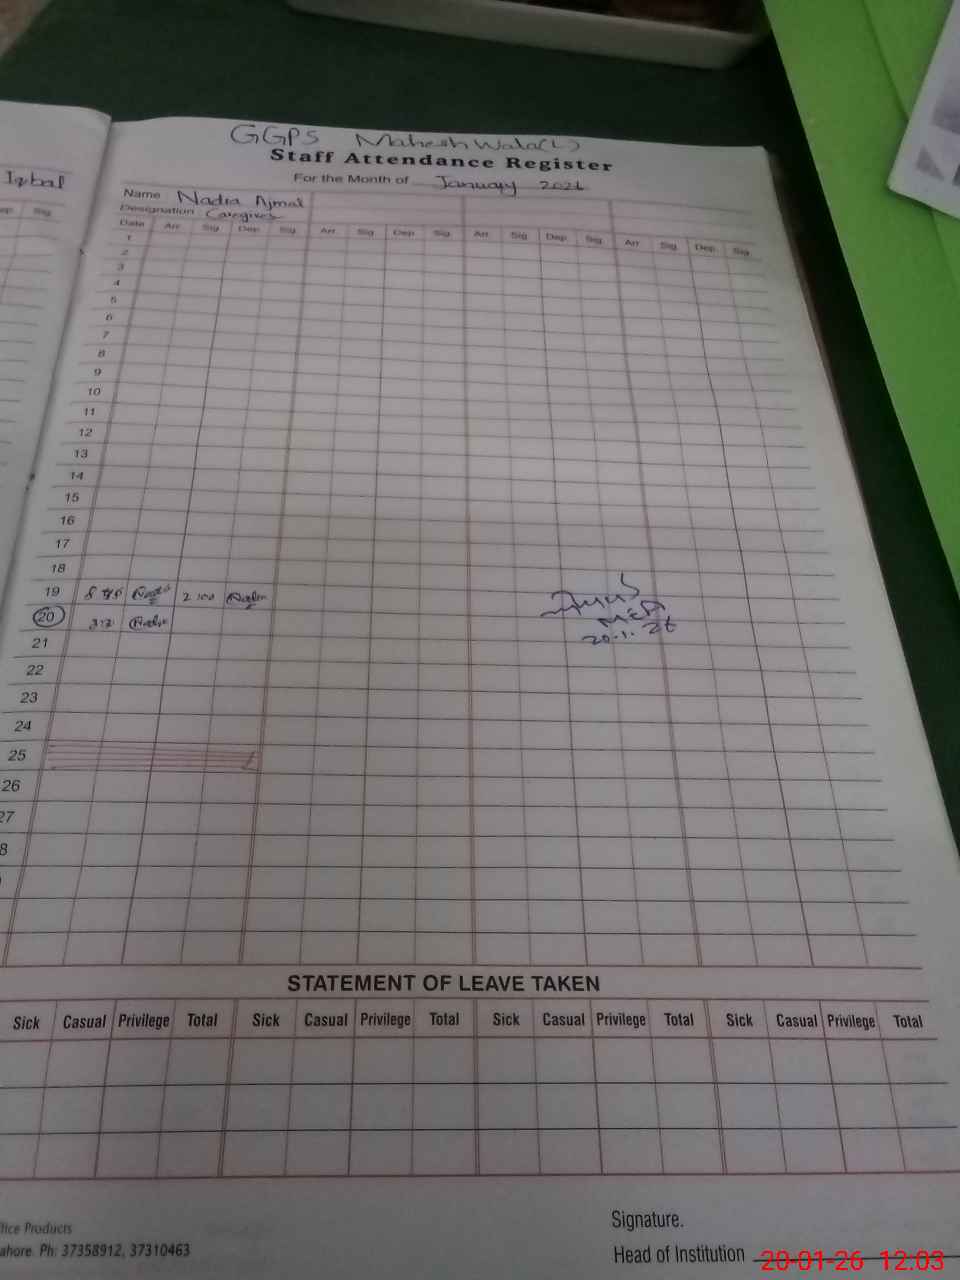 GGPS Mahesh Wala(L)
Staff Attendance Register
Iqbal
For the Month of January 2026
Name Nadia Ajmal
Designation Caregiver
ep. Sig.
Date Arr. Sig. Dep. Sig. Arr. Sig. Dep. Sig. Arr. Sig. Dep. Sig. Arr. Sig. Dep. Sig.
1
2
3
4
5
6
7
8
9
10
11
12
13
14
15
16
17
18
19 8 45 Nadia 2:00 Nadia
20 Nadia
MEA
20.1.26
21
22
23
24
25
26
27
8
STATEMENT OF LEAVE TAKEN
Sick Casual Privilege Total Sick Casual Privilege Total Sick Casual Privilege Total Sick Casual Privilege Total
ffice Products
ahore. Ph: 37358912, 37310463
Signature.
Head of Institution
20-01-26 12.03